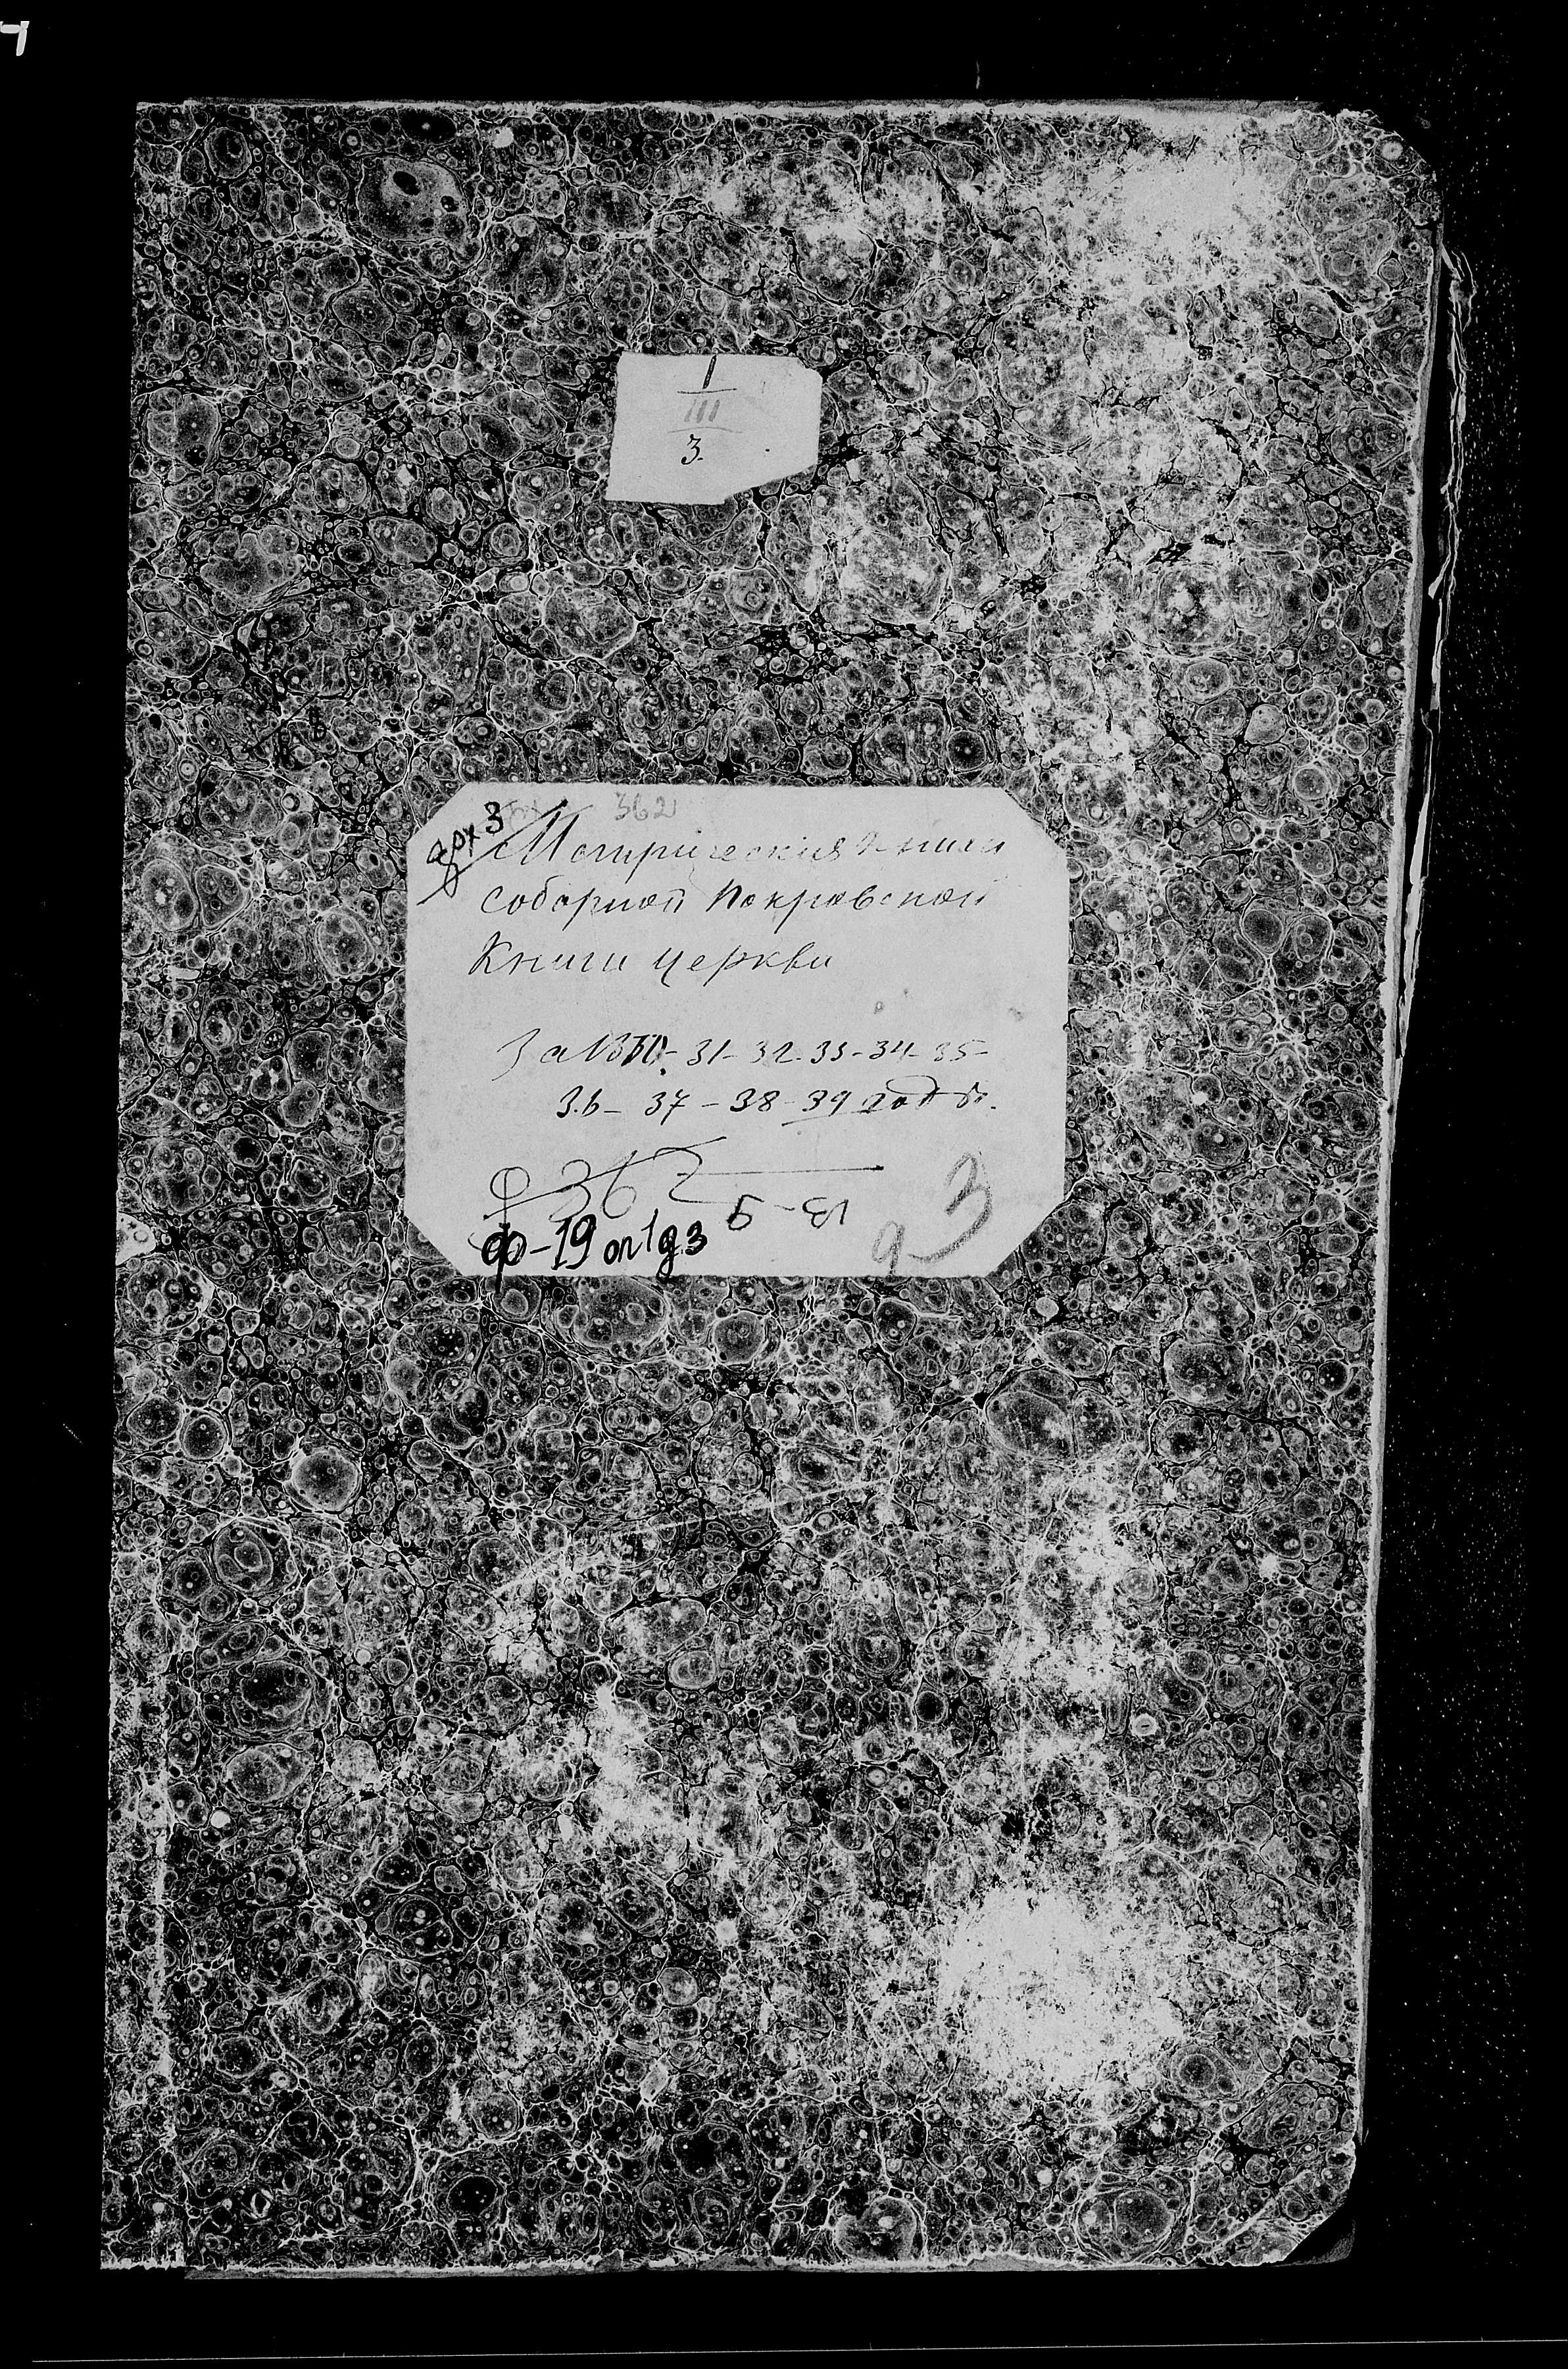 1
III
3.
362
арх 3
Метрическия книги
соборной Покровской
Книги церкви
За 1830-31-32-33-34-35-
36-37-38-39 годы.
ф 362
Б-13
ф-19 оп 1 д 3
д-3